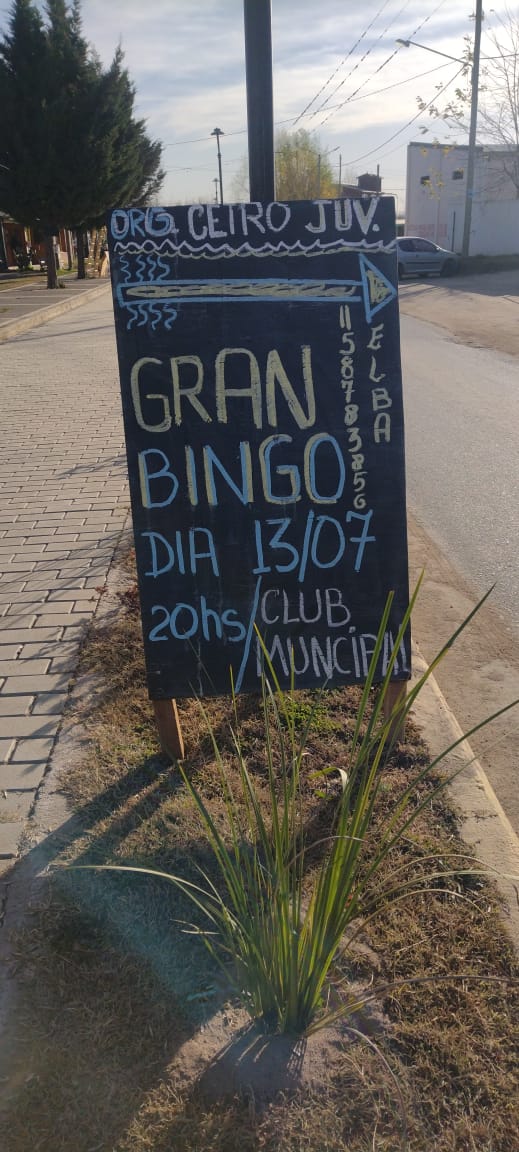 ORG. CEIRO JUV.
GRAN
BINGO
DIA 13/07
20hs/CLUB.
MUNCÍPAL
1158783856
ELBA